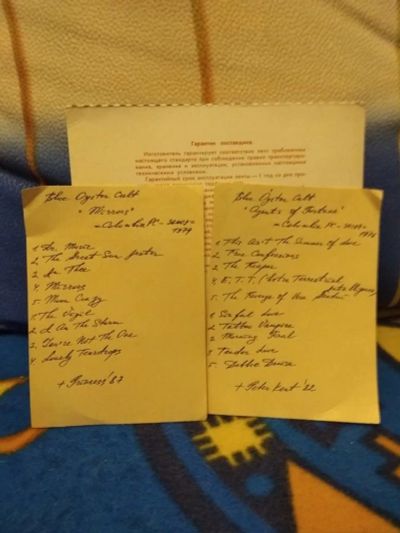 Гарантии поставщика
Изготовитель гарантирует соответствие лент требованиям
настоящего стандарта при соблюдении правил транспортиро-
вания, хранения и эксплуатации, установленных настоящими
техническими условиями.
Гарантийный срок эксплуатации ленты — 1 год со дня про-
Blue Öyster Cult
"Mirrors"
Columbia PC -
1979
1 Dr. Music
2. The Great Sun Jester
3. In Thee
4. Mirrors
5. Moon Crazy
1. The Vigil
2. I Am The Storm
3. You're Not The One
4. Lonely Teardrops
+ '87
Blue Öyster Cult
"Agents of Fortune"
Columbia PC -
1976
1 This Ain't The Summer of Love
2 True Confessions
3 The Reaper
4. E.T.I. (Extra Terrestrial
Intelligence)
5. The Revenge of Vera Gemini
1 Sinful Love
2 Tattoo Vampire
3 Morning Final
4 Tender Love
5. Debbie Denise
+ Peter Kent '82